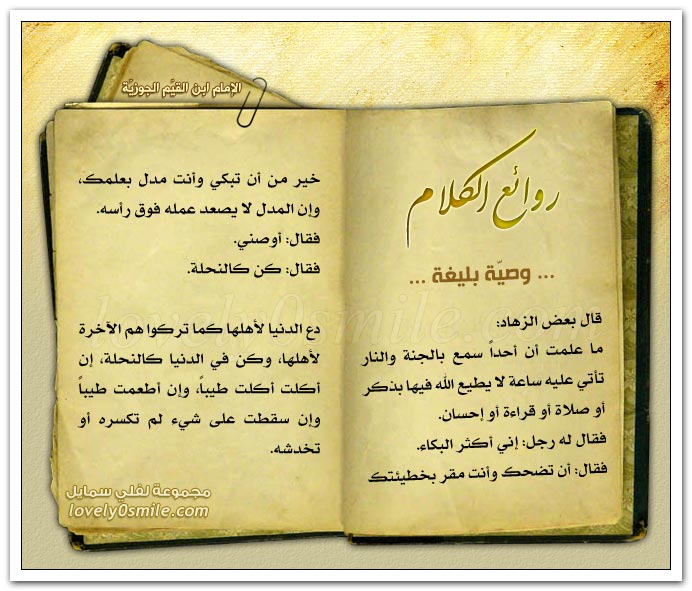 الإمام ابن القيَّم الجوزيَّة
روائع الكلام
... وصيّة بليغة ...
قال بعض الزهاد:
ما علمت أن أحداً سمع بالجنة والنار
تأتي عليه ساعة لا يطيع الله فيها بذكر
أو صلاة أو قراءة أو إحسان.
فقال له رجل: إني أكثر البكاء.
فقال: أن تضحك وأنت مقر بخطيئتك
خير من أن تبكي وأنت مدل بعلمك،
وإن المدل لا يصعد عمله فوق رأسه.
فقال: أوصني.
فقال: كن كالنحلة.
دع الدنيا لأهلها كما تركوا هم الآخرة
لأهلها، وكن في الدنيا كالنحلة، إن
أكلت أكلت طيباً، وإن أطعمت طيباً
وإن سقطت على شيء لم تكسره أو
تخدشه.
lovely0smile.com
مجموعة لفلي سمايل
lovely0smile.com